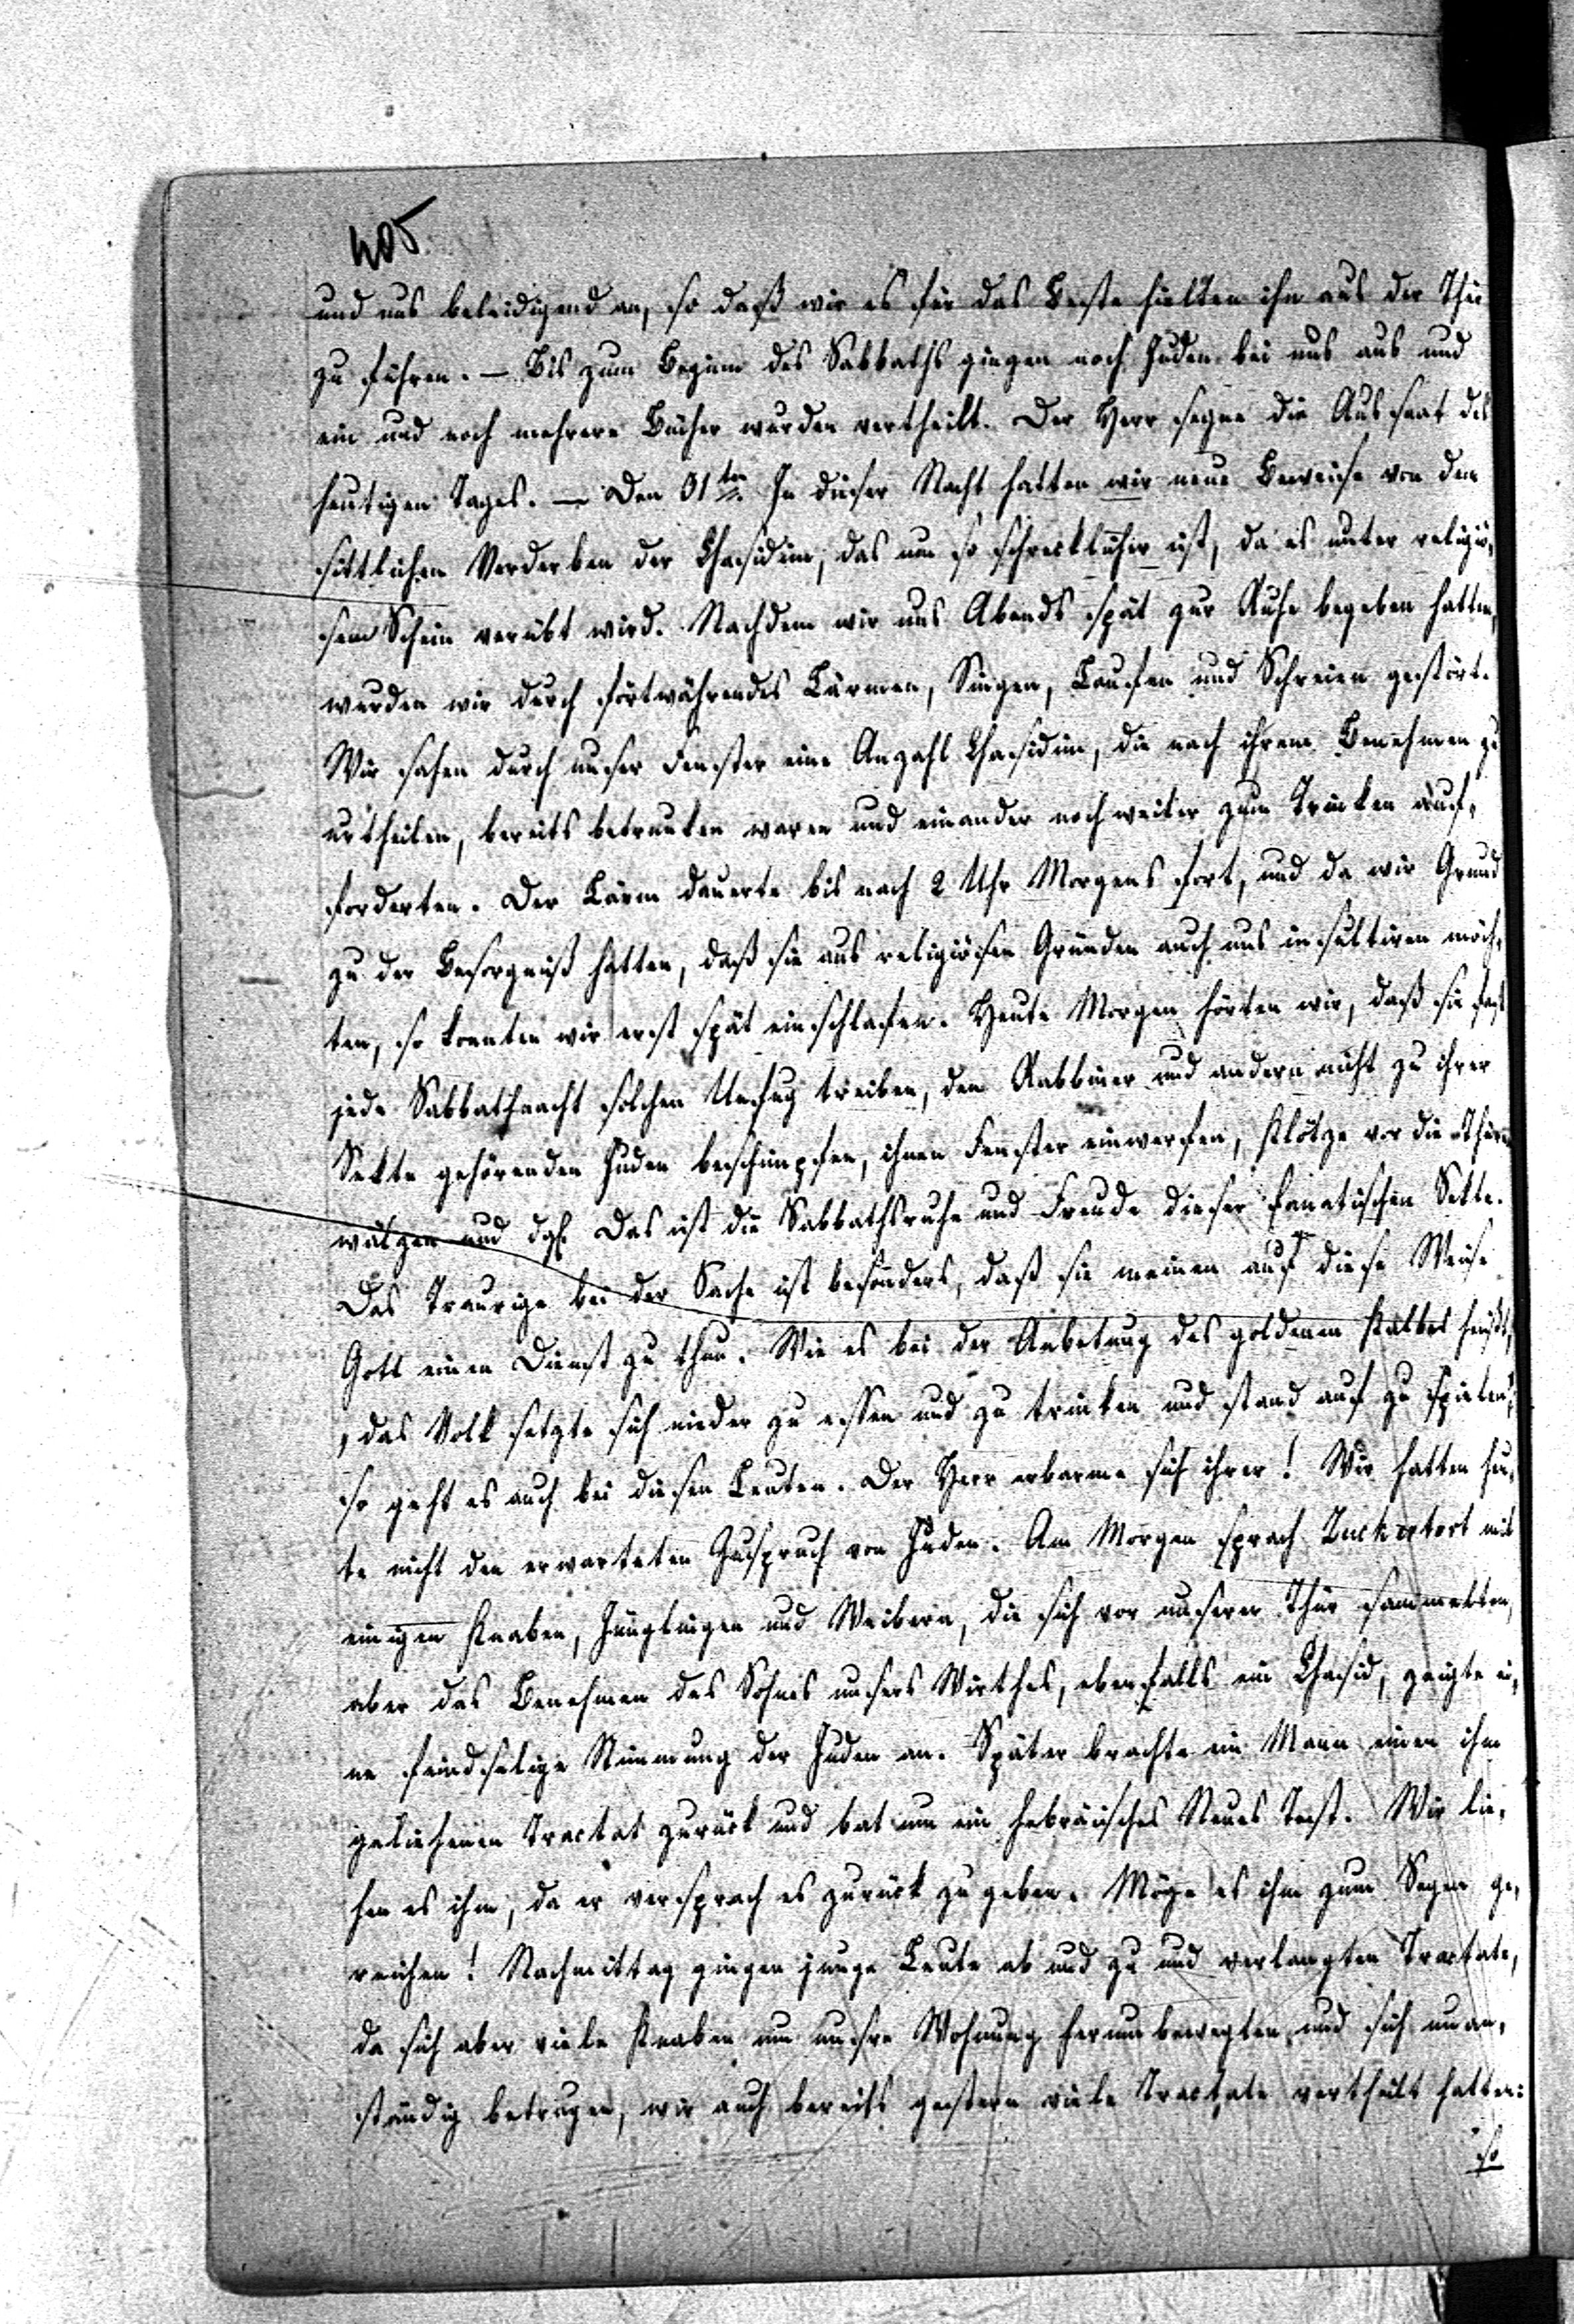 405.
und uns beleidigend an, so daß wir es für das Beste hielten ihn aus der Thür
zu führen. — Bis zum Beginn des Sabbaths gingen noch Juden bei uns aus und
ein und noch mehrere Bücher wurden vertheilt. Der Herr segne die Aussaat des
heutigen Tages. — Den 31ten. In dieser Nacht hatten wir neue Beweise von dem
sittlichen Verderben der Chasidim, das um so schrecklicher ist, da es unter religiö-
sem Schein verübt wird. Nachdem wir uns Abends spät zur Ruhe begeben hatten,
wurden wir durch fortwährendes Lärmen, Singen, Laufen und Schreien gestört.
Wir sahen durch unser Fenster eine Anzahl Chasidim, die nach ihrem Benehmen zu
urtheilen, bereits betrunken waren und einander noch weiter zum Trinken auf-
forderten. Der Lärm dauerte bis nach 2 Uhr Morgens fort, und da wir Grund
zu der Besorgniß hatten, daß sie aus religiösen Gründen auch uns insultiren möch-
ten, so konnten wir erst spät einschlafen. Heute Morgen hörten wir, daß sie fast
jede Sabbathnacht solchen Unfug treiben, den Rabbiner und andern nicht zu ihrer
Sekte gehörenden Juden beschimpfen, ihnen Fenster einwerfen, Klötze vor die Thüre
wälzen und dgl. Das ist die Sabbathsruhe und Freude dieser fanatischen Sekte.
Das Traurige bei der Sache ist besonders, daß sie meinen auf diese Weise
Gott einen Dienst zu thun. Wie es bei der Anbetung des goldenen Kalbes heißt,
„das Volk setzte sich nieder zu essen und zu trinken und stand auf zu spielen“,
so geht es auch bei diesen Leuten. Der Herr erbarme sich ihrer! Wir hatten heu-
te nicht den erwarteten Zuspruch von Juden. Am Morgen sprach Zuckertort mit
einigen Knaben, Jünglingen und Weibern, die sich vor unserer Thür sammelten,
aber das Benehmen des Sohnes unsers Wirthes, ebenfalls ein Chasid, zeigte ei-
ne feindselige Stimmung der Juden an. Später brachte ein Mann einen ihm
geliehenen Tractat zurück und bat um ein hebräisches Neues Test. Wir lie-
hen es ihm, da er versprach es zurück zu geben. Möge es ihm zum Segen ge-
reichen! Nachmittag gingen junge Leute ab und zu und verlangten Tractate,
da sich aber viele Knaben um unsre Wohnung herum bewegten und sich unan-
ständig betrugen, wir auch bereits gestern viele Tractate vertheilt hatten:
so